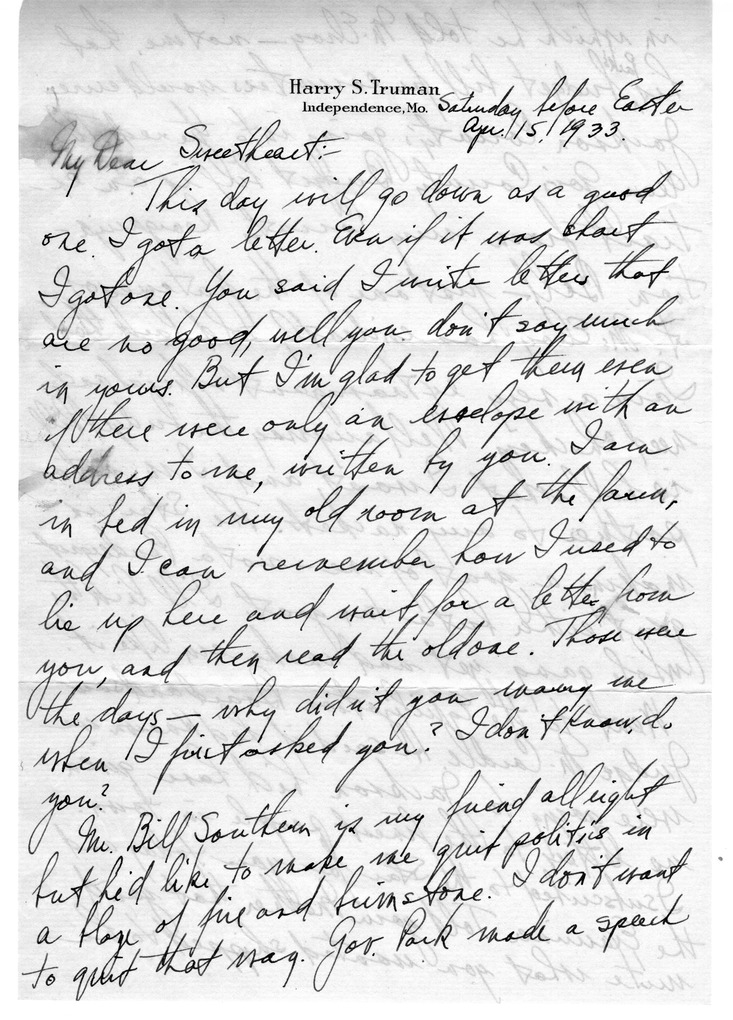 Harry S. Truman
Independence, Mo.
Saturday before Easter
Apr. 15, 1933.
My Dear Sweetheart:-
This day will go down as a good
one. I got a letter. Even if it was short
I got one. You said I write letters that
are no good, well you don't say much
in yours. But I'm glad to get them even
if there were only an envelope with an
address to me, written by you. I am
in bed in my old room at the farm,
and I can remember how I used to
lie up here and wait for a letter from
you, and then read the old one. Those were
the days — why didn't you marry me
when I first asked you? I don't know, do
you?
Mr. Bill Southern is my friend allright
but he'd like to make me quit politics in
a blaze of fire and brimstone. I don't want
to quit that way. Gov. Park made a speech